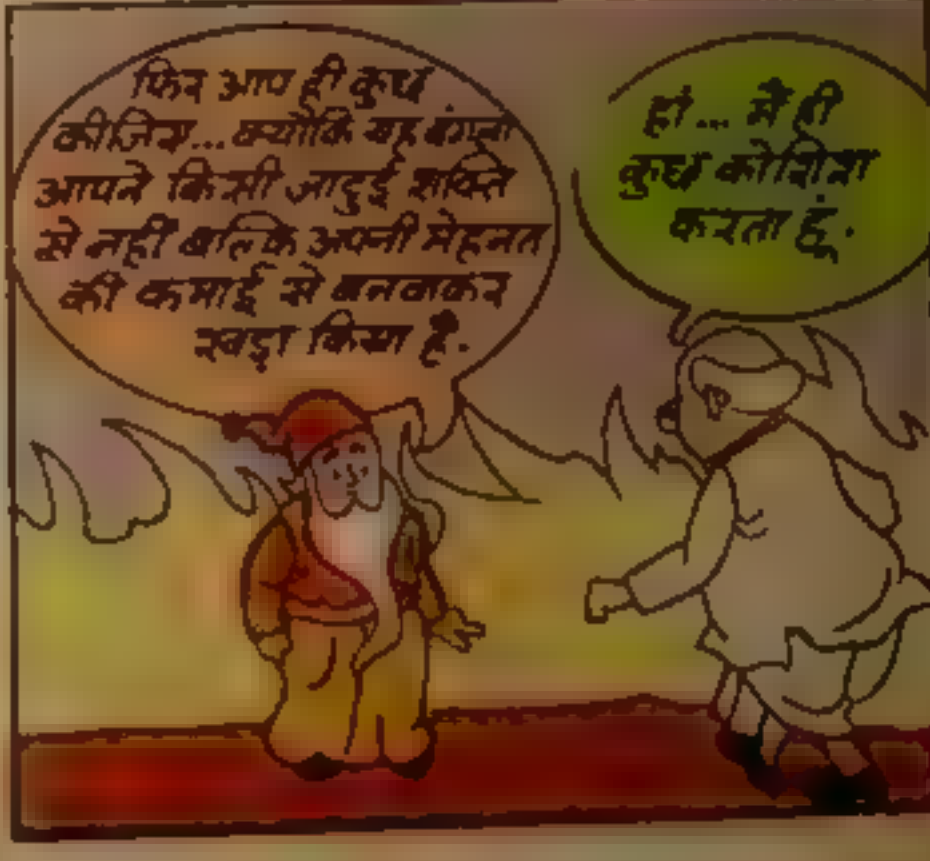 फिर आप ही कुछ
कीजिए...क्योंकि यह बंगला
आपने किसी जादुई शक्ति
से नहीं बल्कि अपनी मेहनत
की कमाई से बनवाकर
खड़ा किया है.
हां... मैं ही
कुछ कोशिश
करता हूं.